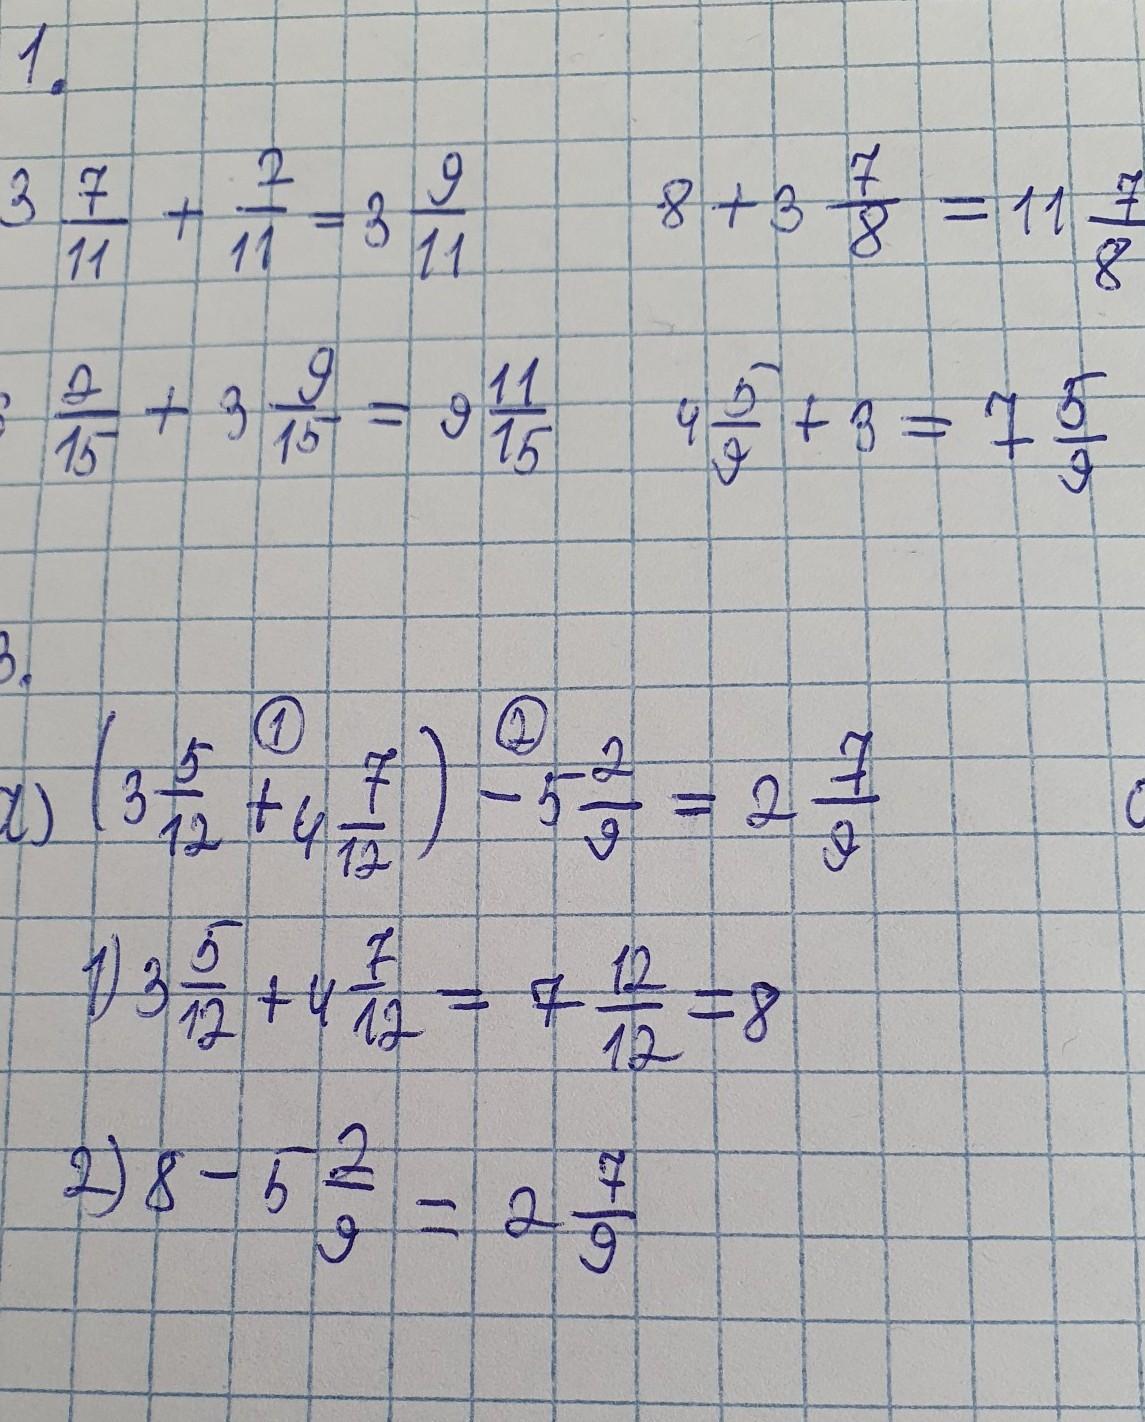 1.
3 7/11 + 2/11 = 3 9/11 8 + 3 7/8 = 11 7/8
2/15 + 3 9/15 = 9 11/15 4 5/9 + 3 = 7 5/9
3.
a) (3 5/12 + 4 7/12) - 5 2/9 = 2 7/9
① ②
1) 3 5/12 + 4 7/12 = 7 12/12 = 8
2) 8 - 5 2/9 = 2 7/9